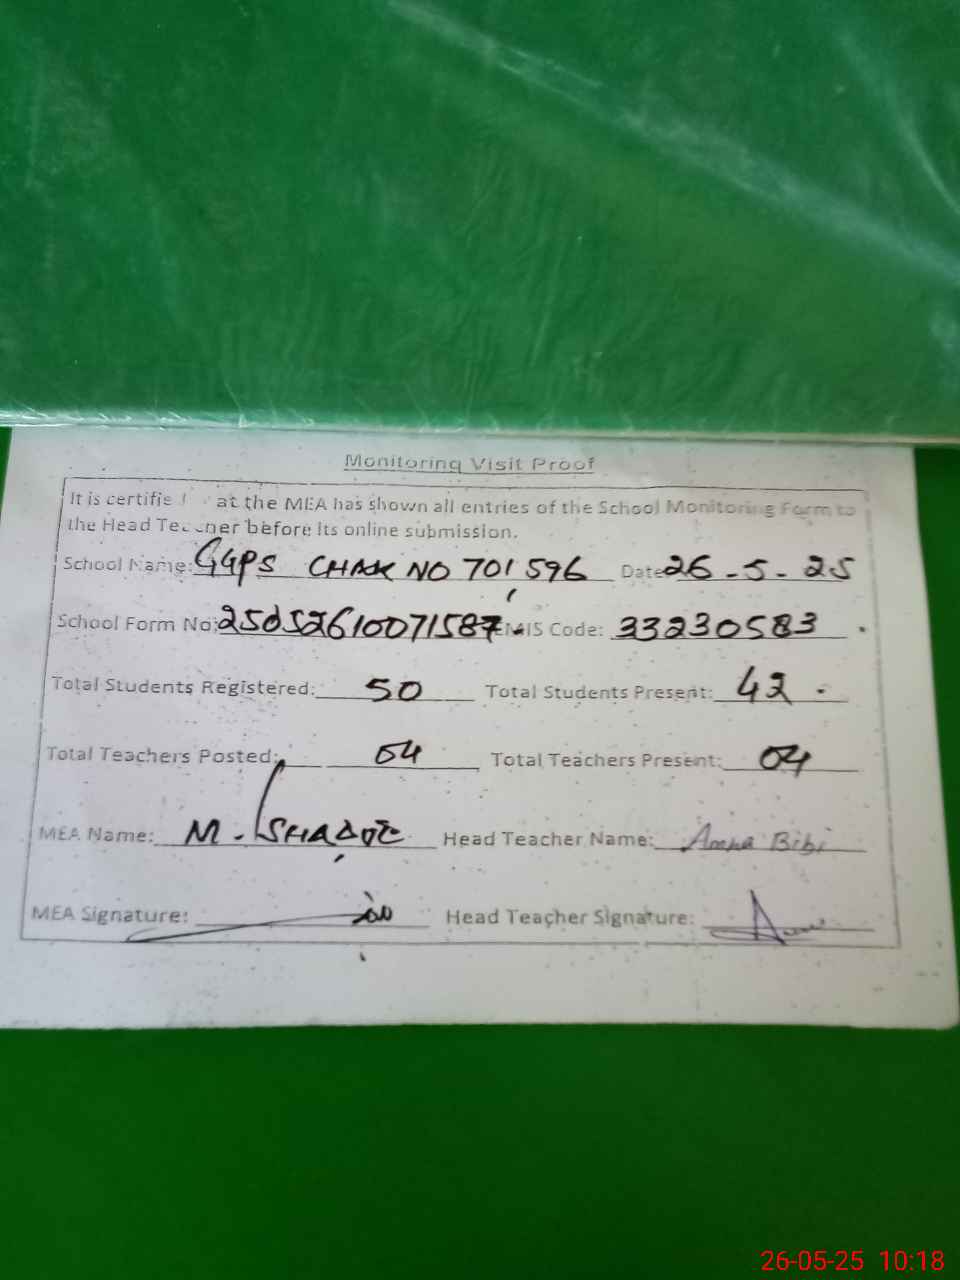 Monitoring Visit Proof
It is certifie at the MEA has shown all entries of the School Monitoring Form to
the Head Teacher before its online submission.
School Name: GGPS CHAK NO 701 596 Date 26-5-25
School Form No: 25052610071587 EMIS Code: 33230583
Total Students Registered: 50 Total Students Present: 42
Total Teachers Posted: 04 Total Teachers Present: 04
MEA Name: M. Head Teacher Name: Bibi
MEA Signature: Head Teacher Signature:
26-05-25 10:18